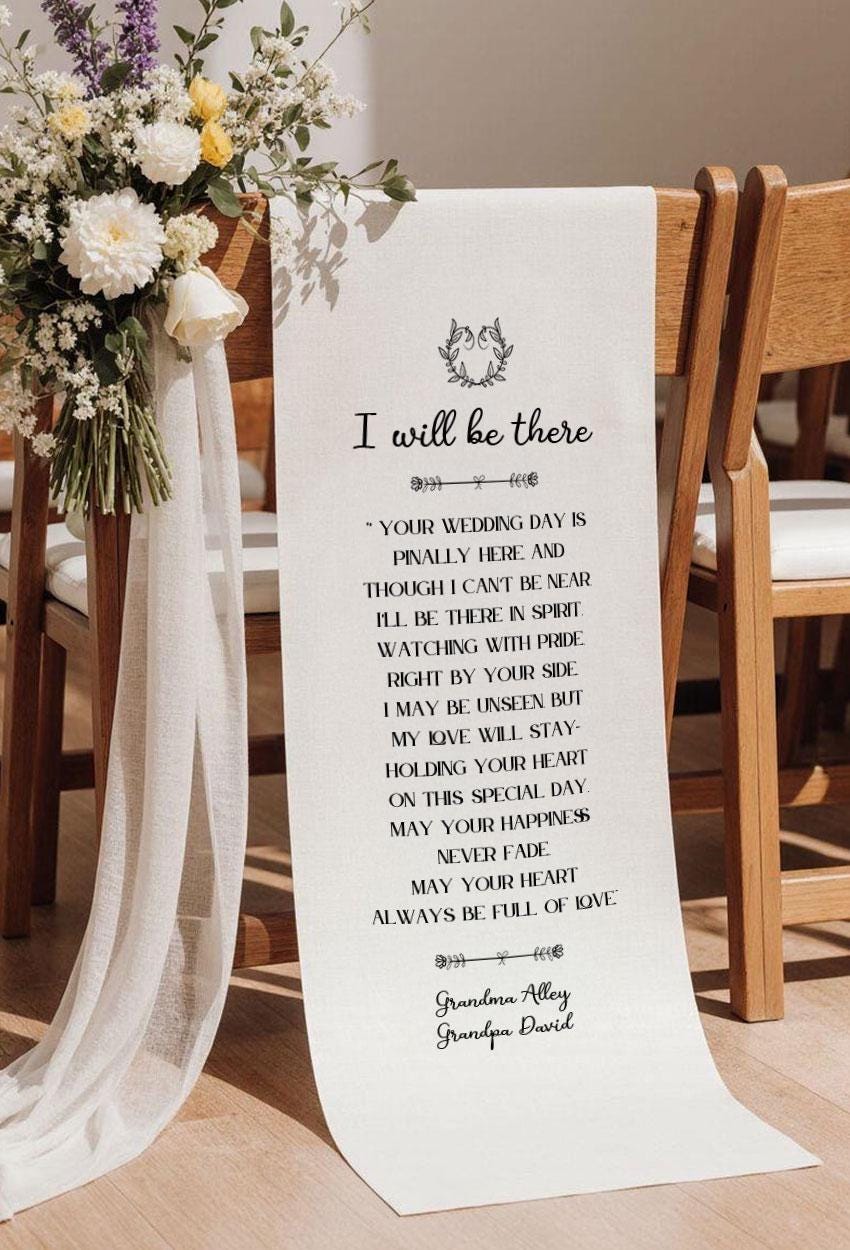 I will be there
“ YOUR WEDDING DAY IS
PINALLY HERE. AND
THOUGH I CAN'T BE NEAR.
I'LL BE THERE IN SPIRIT.
WATCHING WITH PRIDE.
RIGHT BY YOUR SIDE.
I MAY BE UNSEEN. BUT
MY LOVE WILL STAY-
HOLDING YOUR HEART
ON THIS SPECIAL DAY.
MAY YOUR HAPPINESS
NEVER FADE.
MAY YOUR HEART
ALWAYS BE FULL OF LOVE.”
Grandma Alley
Grandpa David